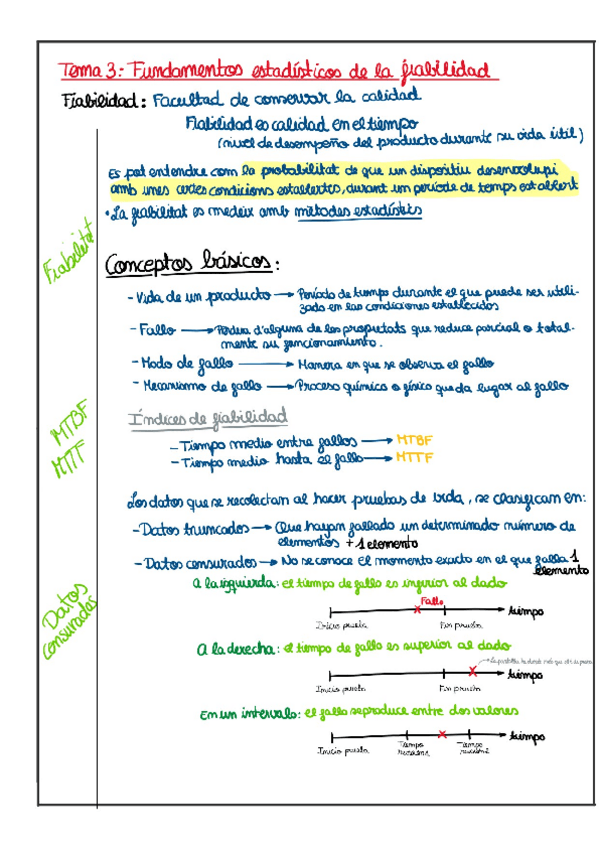 Tema 3: Fundamentos estadísticos de la fiabilidad
Fiabilidad: Facultad de conservar la calidad
Fiabilidad es calidad en el tiempo
(nivel de desempeño del producto durante su vida útil)
Es pot entendre com la probabilitat de que un dispositiu desenvolupi
amb unes certes condicions establertes, durant un període de temps establert
• La fiabilitat es medeix amb mètodes estadístics
Fiabilitat
Conceptos básicos:
- Vida de un producto → Período de tiempo durante el que puede ser utili-
zado en las condiciones establecidas
- Fallo → Pèrdua d'alguna de les propietats que reduce parcial o total-
mente su funcionamiento.
- Modo de fallo → Manera en que se observa el fallo
- Mecanismo de fallo → Proceso químico o físico que da lugar al fallo
MTBF
MTTF
Índices de fiabilidad
- Tiempo medio entre fallos → MTBF
- Tiempo medio hasta el fallo → MTTF
Los datos que se recolectan al hacer pruebas de vida, se clasifican en:
- Datos truncados → Que hayan fallado un determinado número de
elementos + 1 elemento
- Datos censurados → No se conoce el momento exacto en el que falla 1
elemento
Datos
censurados
A la izquierda: el tiempo de fallo es inferior al dado
Fallo
tiempo
Inicio prueba Fin prueba
A la derecha: el tiempo de fallo es superior al dado
tiempo
Inicio prueba Fin prueba
En un intervalo: el fallo se produce entre dos valores
tiempo
Inicio prueba Tiempo revisión1 Tiempo revisión2